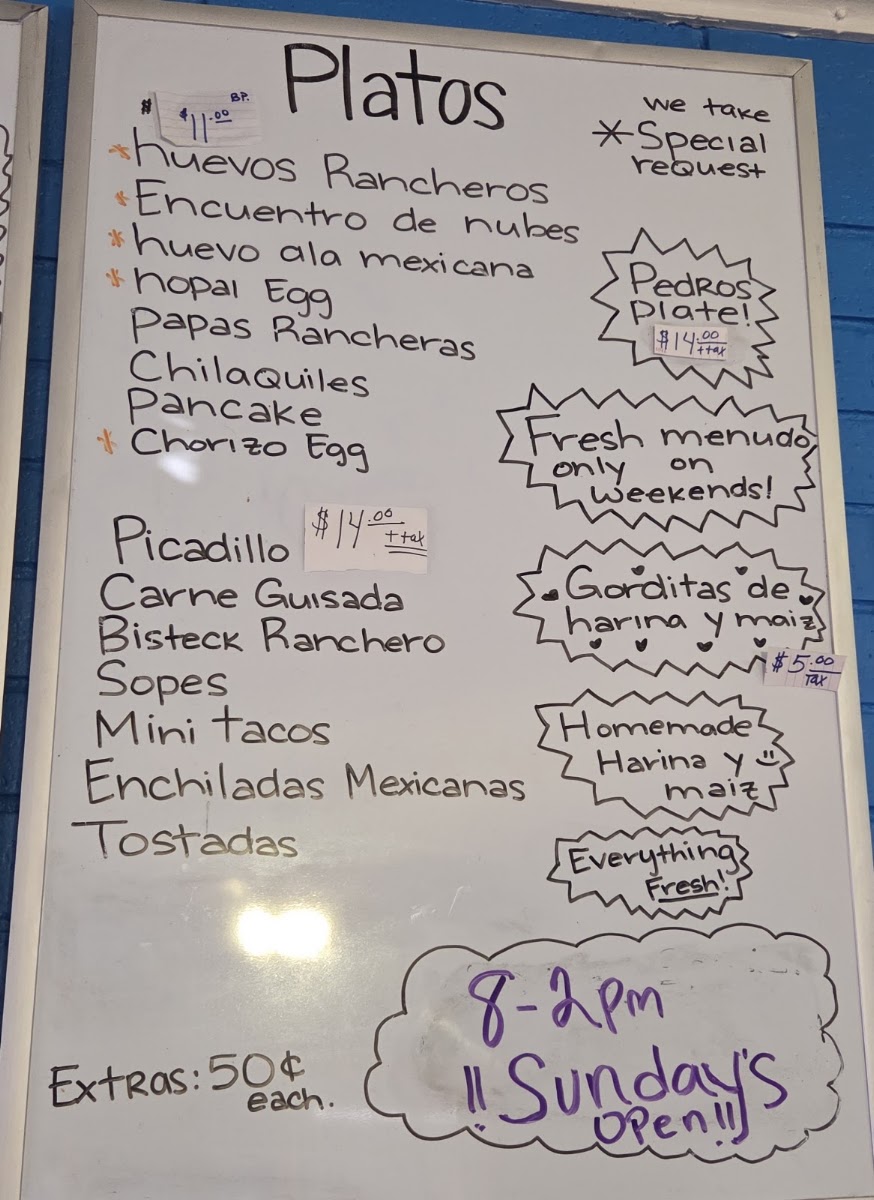 Platos
$ $11.00 BP.
*huevos Rancheros
*Encuentro de nubes
*huevo ala mexicana
*nopal Egg
Papas Rancheras
Chilaquiles
Pancake
*Chorizo Egg
Picadillo $14.00 + tax
Carne Guisada
Bisteck Ranchero
Sopes
Mini tacos
Enchiladas Mexicanas
Tostadas
Extras: 50¢
each.
we take
*Special
request
Pedros
Plate!
$14.00
+tax
Fresh menudo
only on
weekends!
Gorditas de
harina y maiz
$5.00
Tax
Homemade
Harina y
maiz
Everything
Fresh!
8-2pm
!!Sunday's
Open!!